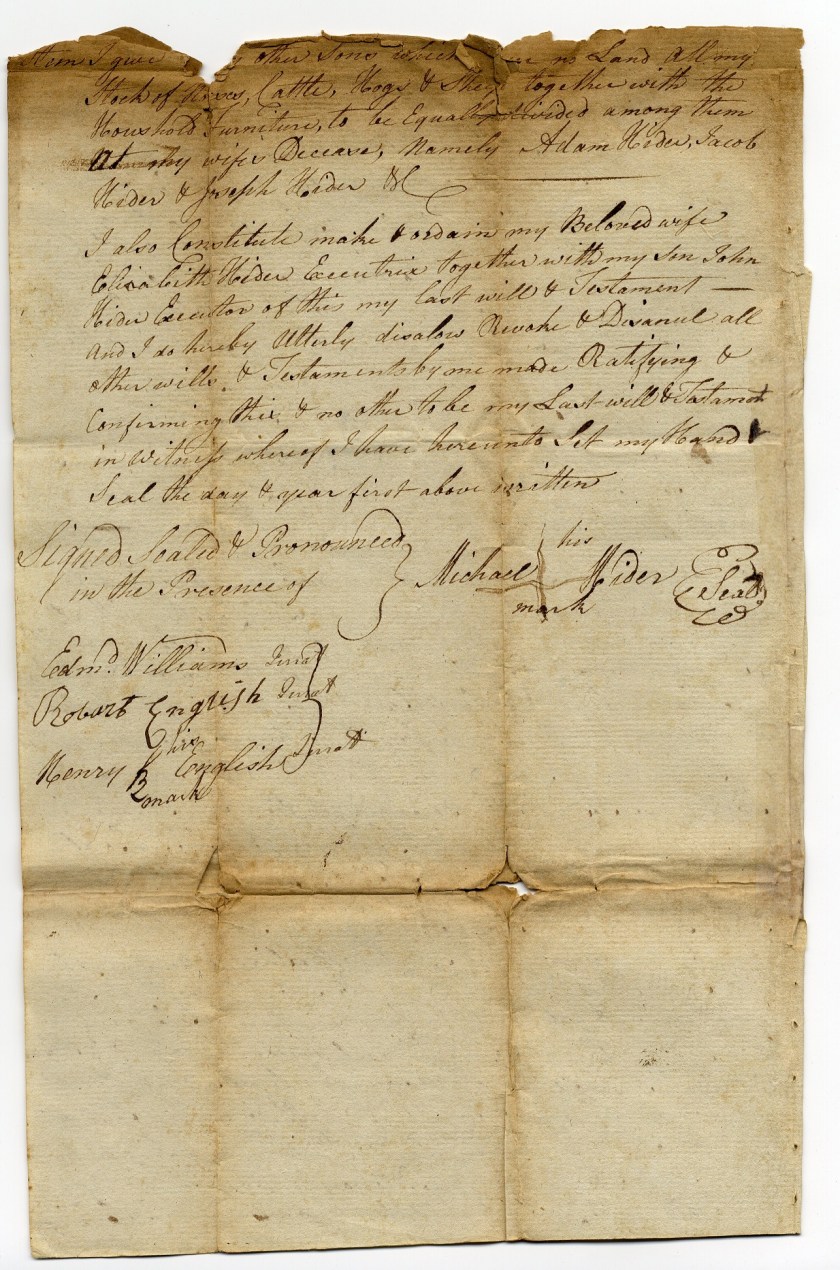 Item I give my other Sons which no Land All my
Stock of Horses, Cattle, Hogs & Sheep together with the
Houshold Furniture, to be Equally divided among them
At my wifes Decease, Namely Adam Hider, Jacob
Hider & Joseph Hider &C
I also Constitute make & ordain my Beloved wife
Elisabeth Hider Executrix together with my Son John
Hider Executor of this my last will & Testament —
And I do hereby Utterly disalow Revoke & Disanul all
other wills & Testaments by me made Ratifying &
Confirming this & no other to be my Last will & Testament
in Witness whereof I have hereunto Set my Hand &
Seal the day & year first above written
Signed Sealed & Pronounced
in the Presence of
his
Michael Hider Seal
mark
Edmd. Williams Jurat
Robart English Jurat
his
Henry English Jurat
mark